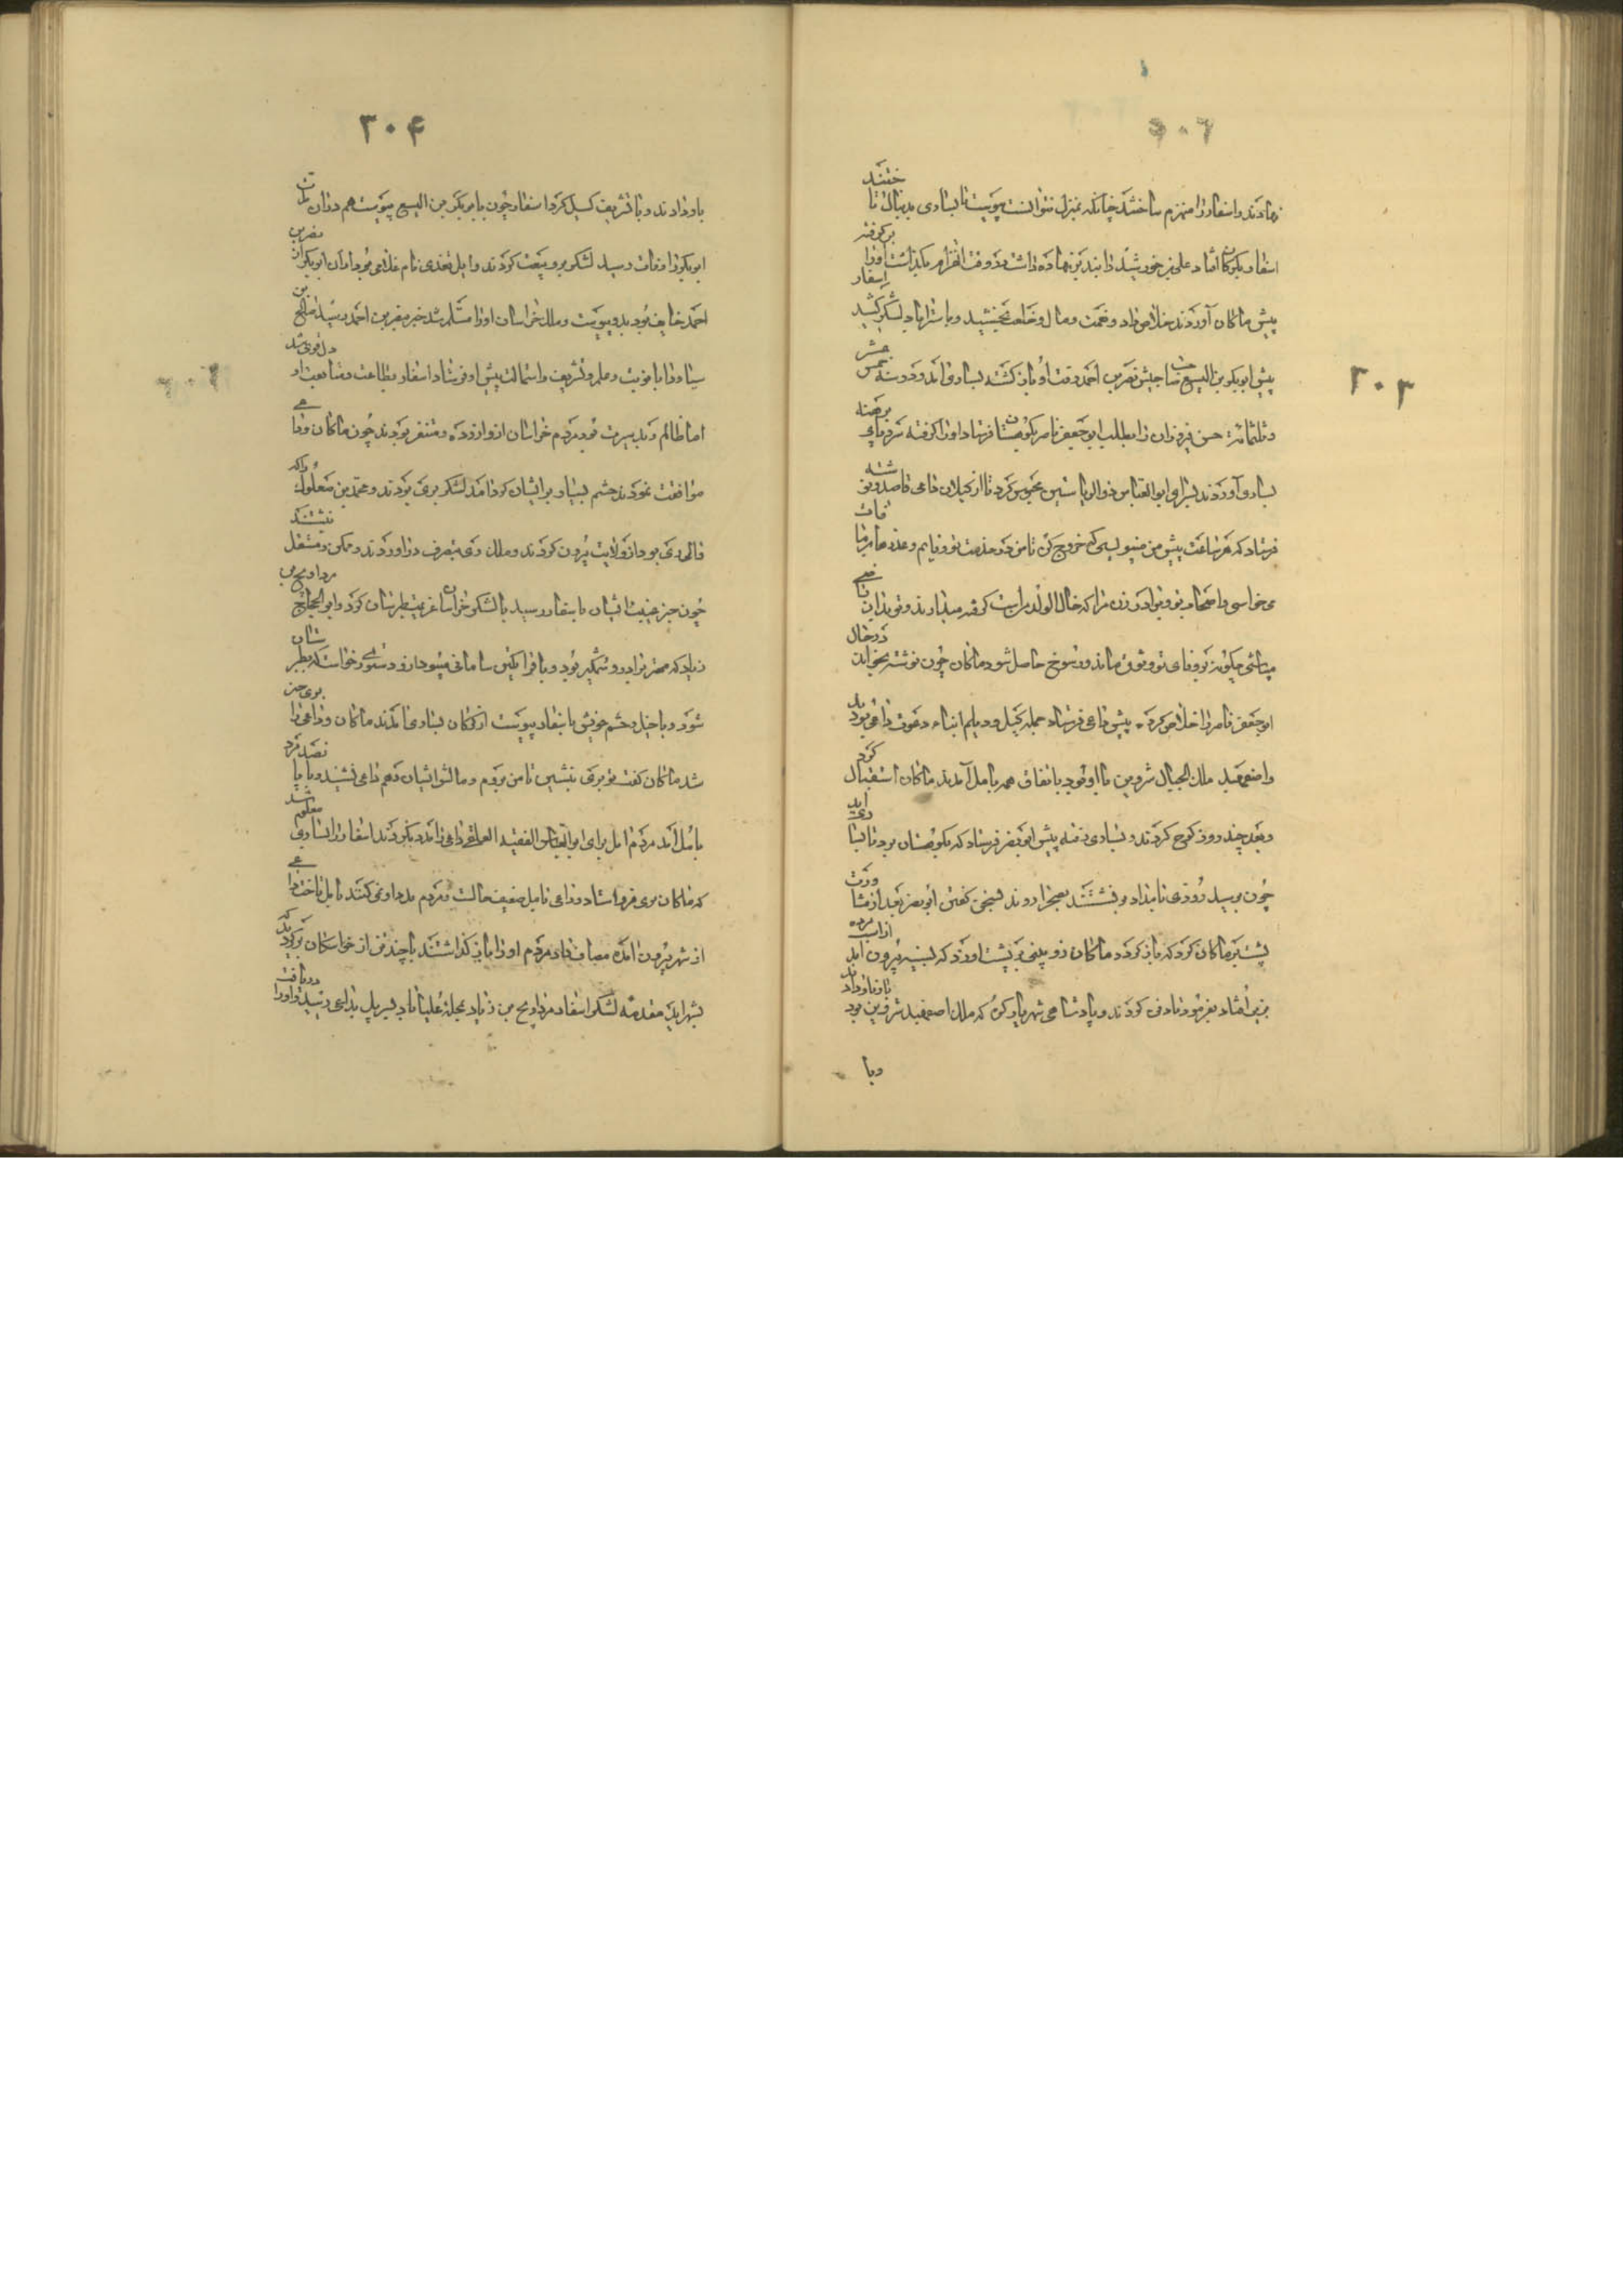 ۳۰۳
نهادند و اسفار را منهزم ساختند چنانکه بمنزل نتوانست پیوست تا بساری بدنبال تاختند
اسفار بکرکان افتاد علی بن خورشید را بند بر نهاده داشت در وقت انهزام بگذاشت او را برگرفته
پیش ماکان آوردند خلاص داد و نعمت و مال و خلعت بخشید و باستراباد لشکر کشید اسفار
پیش ابوبکر بن الیسع صاحب جیش نصر بن احمد رفت او باز کشته بساری آمد و در سنه خمس عشر
و ثلثمائه حسن فیروزان را بطلب ابو جعفر ناصر بکوهستان فرستاد او را گرفته سر و پای برهنه
بساری آوردند بسرای ابوالعباس ذوالریاستین محبوس کرد تا از کیلان داعی قاصد و نوشته
فرستاد که هر ساعت پیش من مینویسی که خروج کن تا من در خدمت تو و قایم و عذرها مرفات
می خواسی و اصحاب تو و برادر زن مرا که خال الولد مراست گرفته میدارند و تو بدان راضی
میباشی چگونه بر وفای تو وثوق ماند و رسوخ حاصل شود ماکان چون نوشته بخواند در حال
ابو جعفر ناصر را خلاص کرده پیش داعی فرستاد جمله کیل و دیلم ابناء دعوت داعی بودند
و اصفهبد ملک الجبال شروین با او بود باتفاق همه بآمل آمدند ماکان استقبال کرد
و بعد چند روز کوچ کردند و بساری رفته پیش ابو نصر فرستاد که بکوهستان بود تا بساری آید
چون برسید روزی بامداد بر نشستند بصحرا روند بسخن گفتن ابو نصر بعد از مشاورت
پشت بر ماکان کرد که باز گردد ماکان زوپینی بر پشت او زد که بسینه بیرون آمد از اسب مرده
بزیر افتاد بفرمود تا دفن کردند و پادشاهی شهریار کوه که ملک اصفهبد شروین بود باو باز دادند
وبا
۳۰۴
باو دادند و با تشریف کسیل کرد اسفار چون با بوبکر بن الیسع پیوست هم دران مدت
ابوبکر را وفات رسید لشکر برو بیعت کردند و ایل نغدی نام غلامی بود از آن ابوبکر از نصر بن
احمد خایف بود بدو پیوست و ملک خراسان او را مسلم شد خبر بنصر بن احمد رسید صالح بن
سیار را با عزیت و علم و تشریف و استمالت پیش او فرستاد اسفار بطاعت و متابعت او دل قوی شد
اما ظالم و بد سیرت بود مردم خراسان ازو آزرده و متنفر بودند چون ماکان و داعی
موافقت نمودند حشم بسیار بر ایشان گرد آمد لشکر بری بردند و محمد بن صعلوک را که
والی ری بود از ولایت بیرون کردند و ملک ری بتصرف در آوردند و ممکن و مستقل نشستند
چون خبر غیبت ایشان باسفار رسید با لشکر خراسان عزیمت طبرستان کرد و ابو الحجاج مرداویج بن
زیاد که مهتر برادر وشمگیر بود و با قراتکین سامانی میبود ازو دستوری خواست که بطبرستان
شود و با خیل و حشم خویش باسفار پیوست از کرکان بساری آمدند ماکان و داعی را بری خبر
شد ماکان گفت تو بری بنشین تا من بروم و مالش ایشان دهم داعی نشنید و بپا قصد مرد
بآمل آمد مردم آمل برای ابوالعباس الفقیه العراقی داعی را مدد نکردند اسفار را بساری معلوم شد
که ماکان بری فرو استاد و داعی بآمل ضعیف حالست و مردم مدد او نمی کنند بآمل تاخت داعی
از شهر بیرون آمده مصاف داد مردم او را باز گذاشتند با چند تن از خواستکان برکردید
بشهر آید مقدمه لشکر اسفار مرداویج بن زیاد بمحله علیاباد بسرپل بداعی رسید و او را دریافت